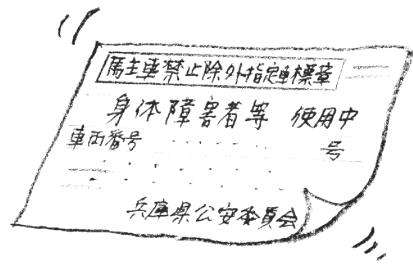 駐車禁止除外指定車標章
身体障害者等 使用中
車両番号 ・・・・・・ 号
兵庫県公安委員会